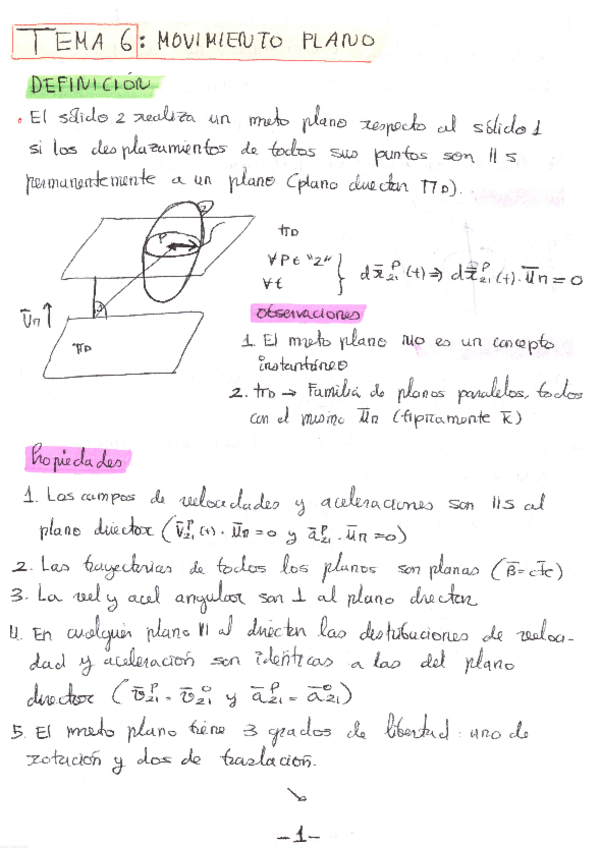 TEMA 6: MOVIMIENTO PLANO
DEFINICIÓN
• El sólido 2 realiza un mvto plano respecto al sólido 1
si los desplazamientos de todos sus puntos son ||s
permanentemente a un plano (plano director ΠD).
2
P
ΠD
∀P∈"2"
∀t
} dx̄₂₁ᴾ(t) ⇒ dx̄₂₁ᴾ(t)·ūn = 0
ūn ↑
ΠD
Observaciones
1. El mvto plano NO es un concepto
instantáneo
2. πD → Familia de planos paralelos, todos
con el mismo ūn (típicamente k̄)
Propiedades
1. Los campos de velocidades y aceleraciones son ||s al
plano director (v̄₂₁ᴾ(t)·ūn=0 y ā₂₁ᴾ·ūn=0)
2. Las trayectorias de todos los planos son planas (B̄=cte)
3. La vel y acel angular son ⊥ al plano director
4. En cualquier plano || al director las distribuciones de veloci-
dad y aceleración son idénticas a las del plano
director (v̄₂₁ᴾ = v̄₂₁ᴼ y ā₂₁ᴾ = ā₂₁ᴼ)
5. El mvto plano tiene 3 grados de libertad: uno de
rotación y dos de traslación.
↘
-1-